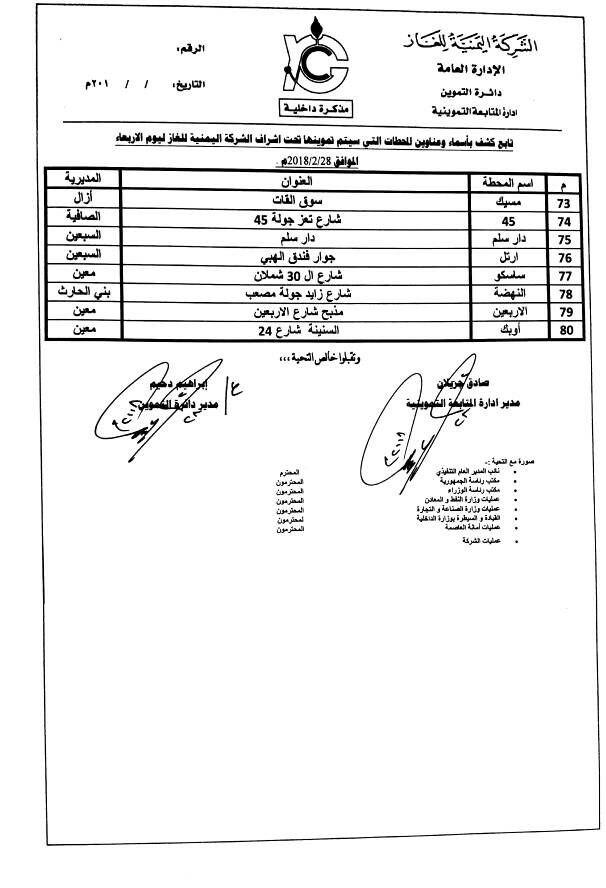 الشركة اليمنية للغاز
الإدارة العامة
دائرة التموين
إدارة المتابعة التموينية
YGC
مذكرة داخلية
الرقم:
التاريخ: / / ٢٠١م
تابع كشف بأسماء وعناوين المحطات التي سيتم تموينها تحت اشراف الشركة اليمنية للغاز ليوم الاربعاء
الموافق 2018/2/28م .
م اسم المحطة العنوان المديرية
73 مسيك سوق القات أزال
74 45 شارع تعز جولة 45 الصافية
75 دار سلم دار سلم السبعين
76 ارتل جوار فندق الهبي السبعين
77 ساسكو شارع ال 30 شملان معين
78 النهضة شارع زايد جولة مصعب بني الحارث
79 الاربعين مذبح شارع الاربعين معين
80 أوبك السنينة شارع 24 معين
وتقبلوا خالص التحية ،،،
صادق جريلان
مدير ادارة المتابعة التموينية
إبراهيم دحيم
مدير دائرة التموين
صورة مع التحية :-
• نائب المدير العام التنفيذي المحترم
• مكتب رئاسة الجمهورية المحترمون
• مكتب رئاسة الوزراء المحترمون
• عمليات وزارة النفط و المعادن المحترمون
• عمليات وزارة الصناعة و التجارة المحترمون
• القيادة و السيطرة بوزارة الداخلية المحترمون
• عمليات أمانة العاصمة المحترمون
• عمليات الشركة